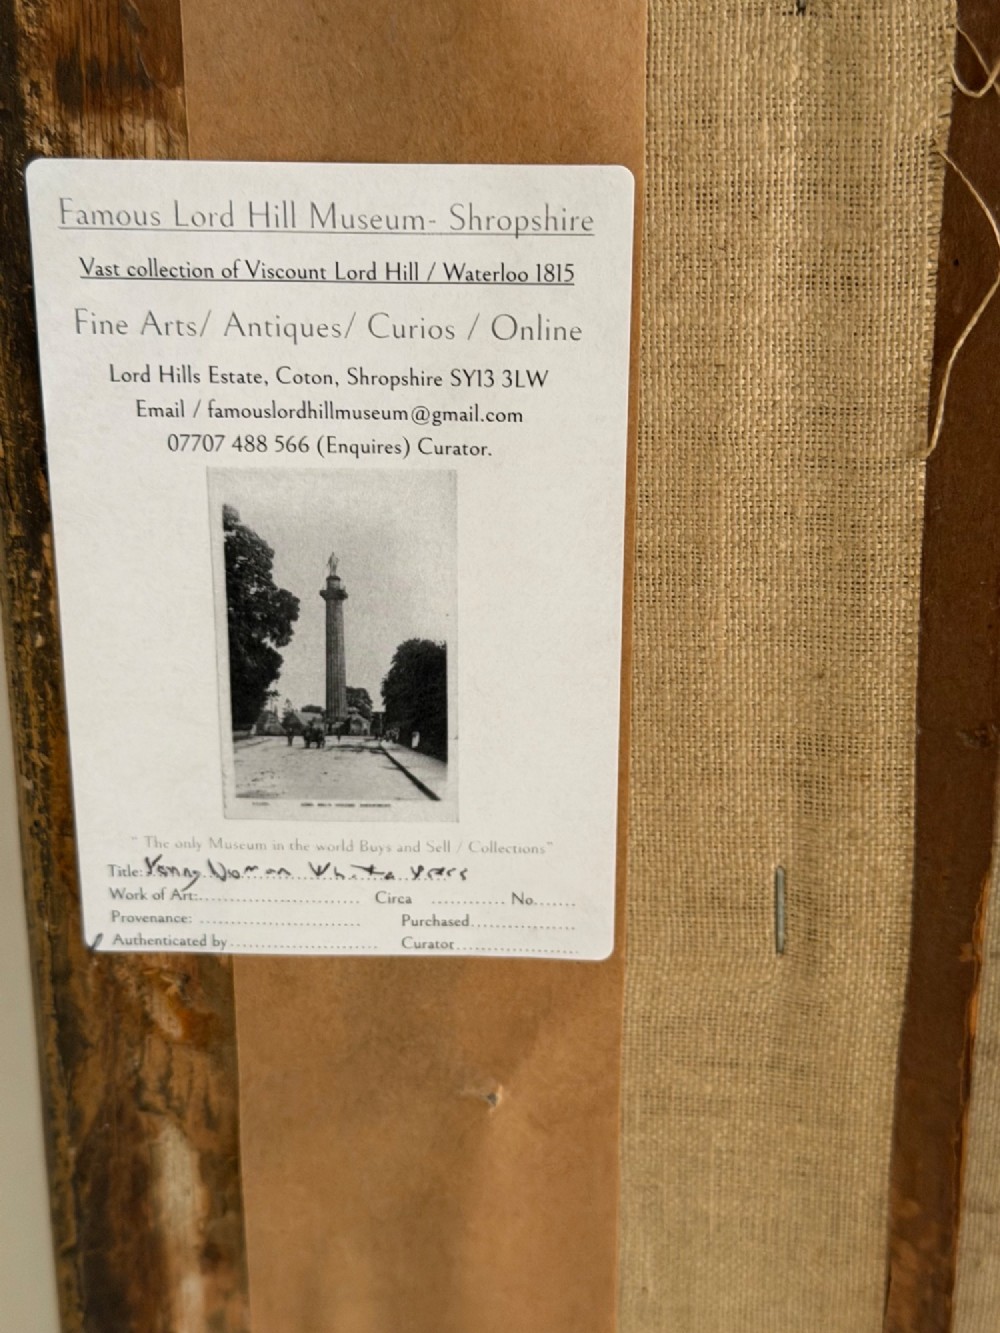 Famous Lord Hill Museum- Shropshire
Vast collection of Viscount Lord Hill / Waterloo 1815
Fine Arts/ Antiques/ Curios / Online
Lord Hills Estate, Coton, Shropshire SY13 3LW
Email / famouslordhillmuseum@gmail.com
07707 488 566 (Enquires) Curator.
" The only Museum in the world Buys and Sell / Collections"
Title: Young Woman White
Work of Art:.................................... Circa ............ No.......
Provenance: .................................... Purchased.................
Authenticated by.................................. Curator....................